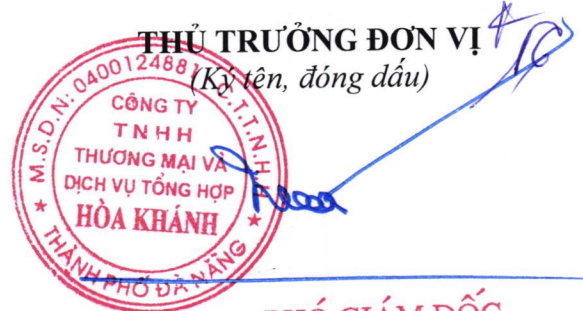 THỦ TRƯỞNG ĐƠN VỊ
(Ký tên, đóng dấu)
M.S.D.N: 040012488
C.T.T.N.H.H
CÔNG TY
TNHH
THƯƠNG MẠI VÀ
DỊCH VỤ TỔNG HỢP
HÒA KHÁNH
THÀNH PHỐ ĐÀ NẴNG
PHÓ GIÁM ĐỐC